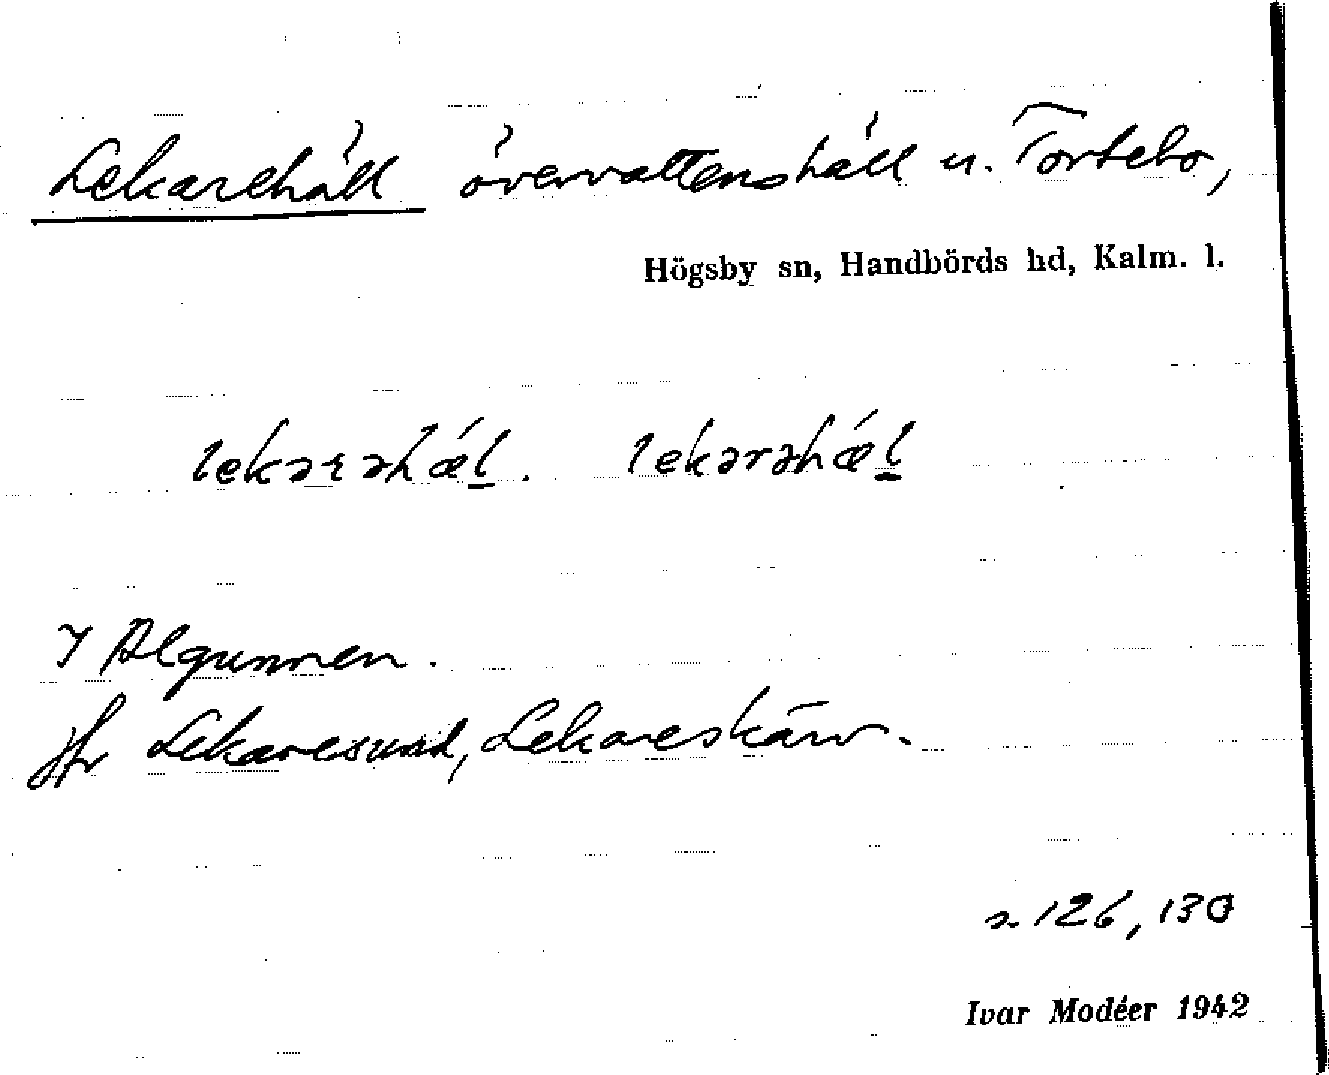 Lekarehäll övervattenshäll u. Tortebo,
Högsby sn, Handbörds hd, Kalm. l.
lekərəhǽl. lekərəhǽl
I Algunnen.
Jfr Lekaresund, Lekareskärv.
s. 126, 130
Ivar Modéer 1942